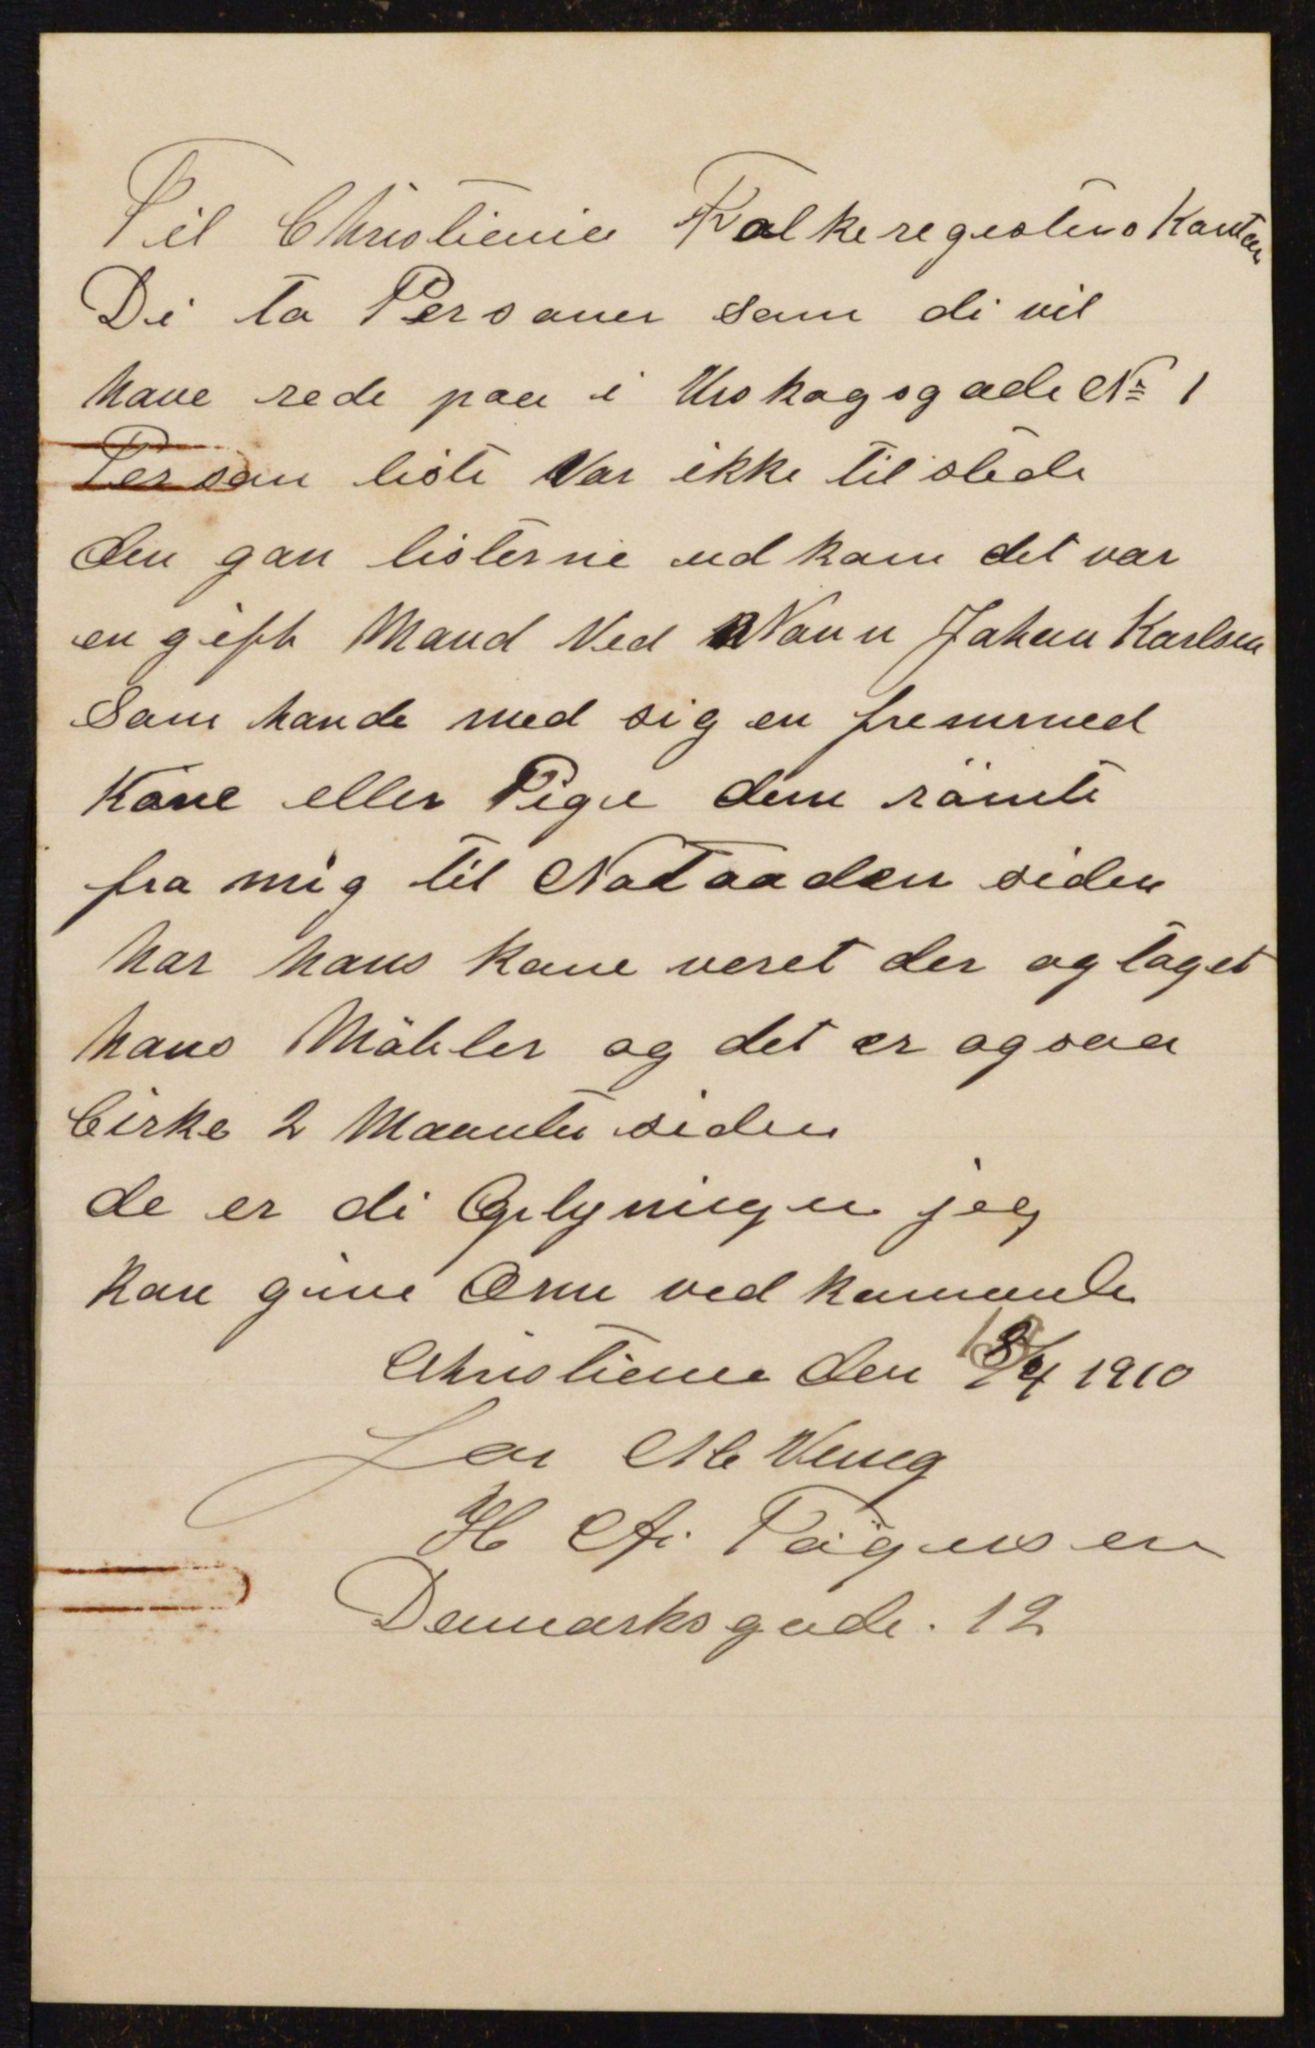 Til Christiania Folkeregisters Kontor
Di to Personer som di vil
have rede paa i Urskogsgade No 1
Person liste Var ikke til stede
den gan listerne ud kom det var
en gift Mand Ved Navn Johan Karlsen
Som havde med sig en fremmed
Kone eller Pige dem römte
fra mig til Notaadden siden
har hans kone veret der og taget
hans Möbler og det er ogsaa
Cirka 2 Maanter siden
de er di Oplyninger jeg
kan give Om ved kommende
Christiania den 18/4 1910
For
H TöGensen
Danmarksgade. 12